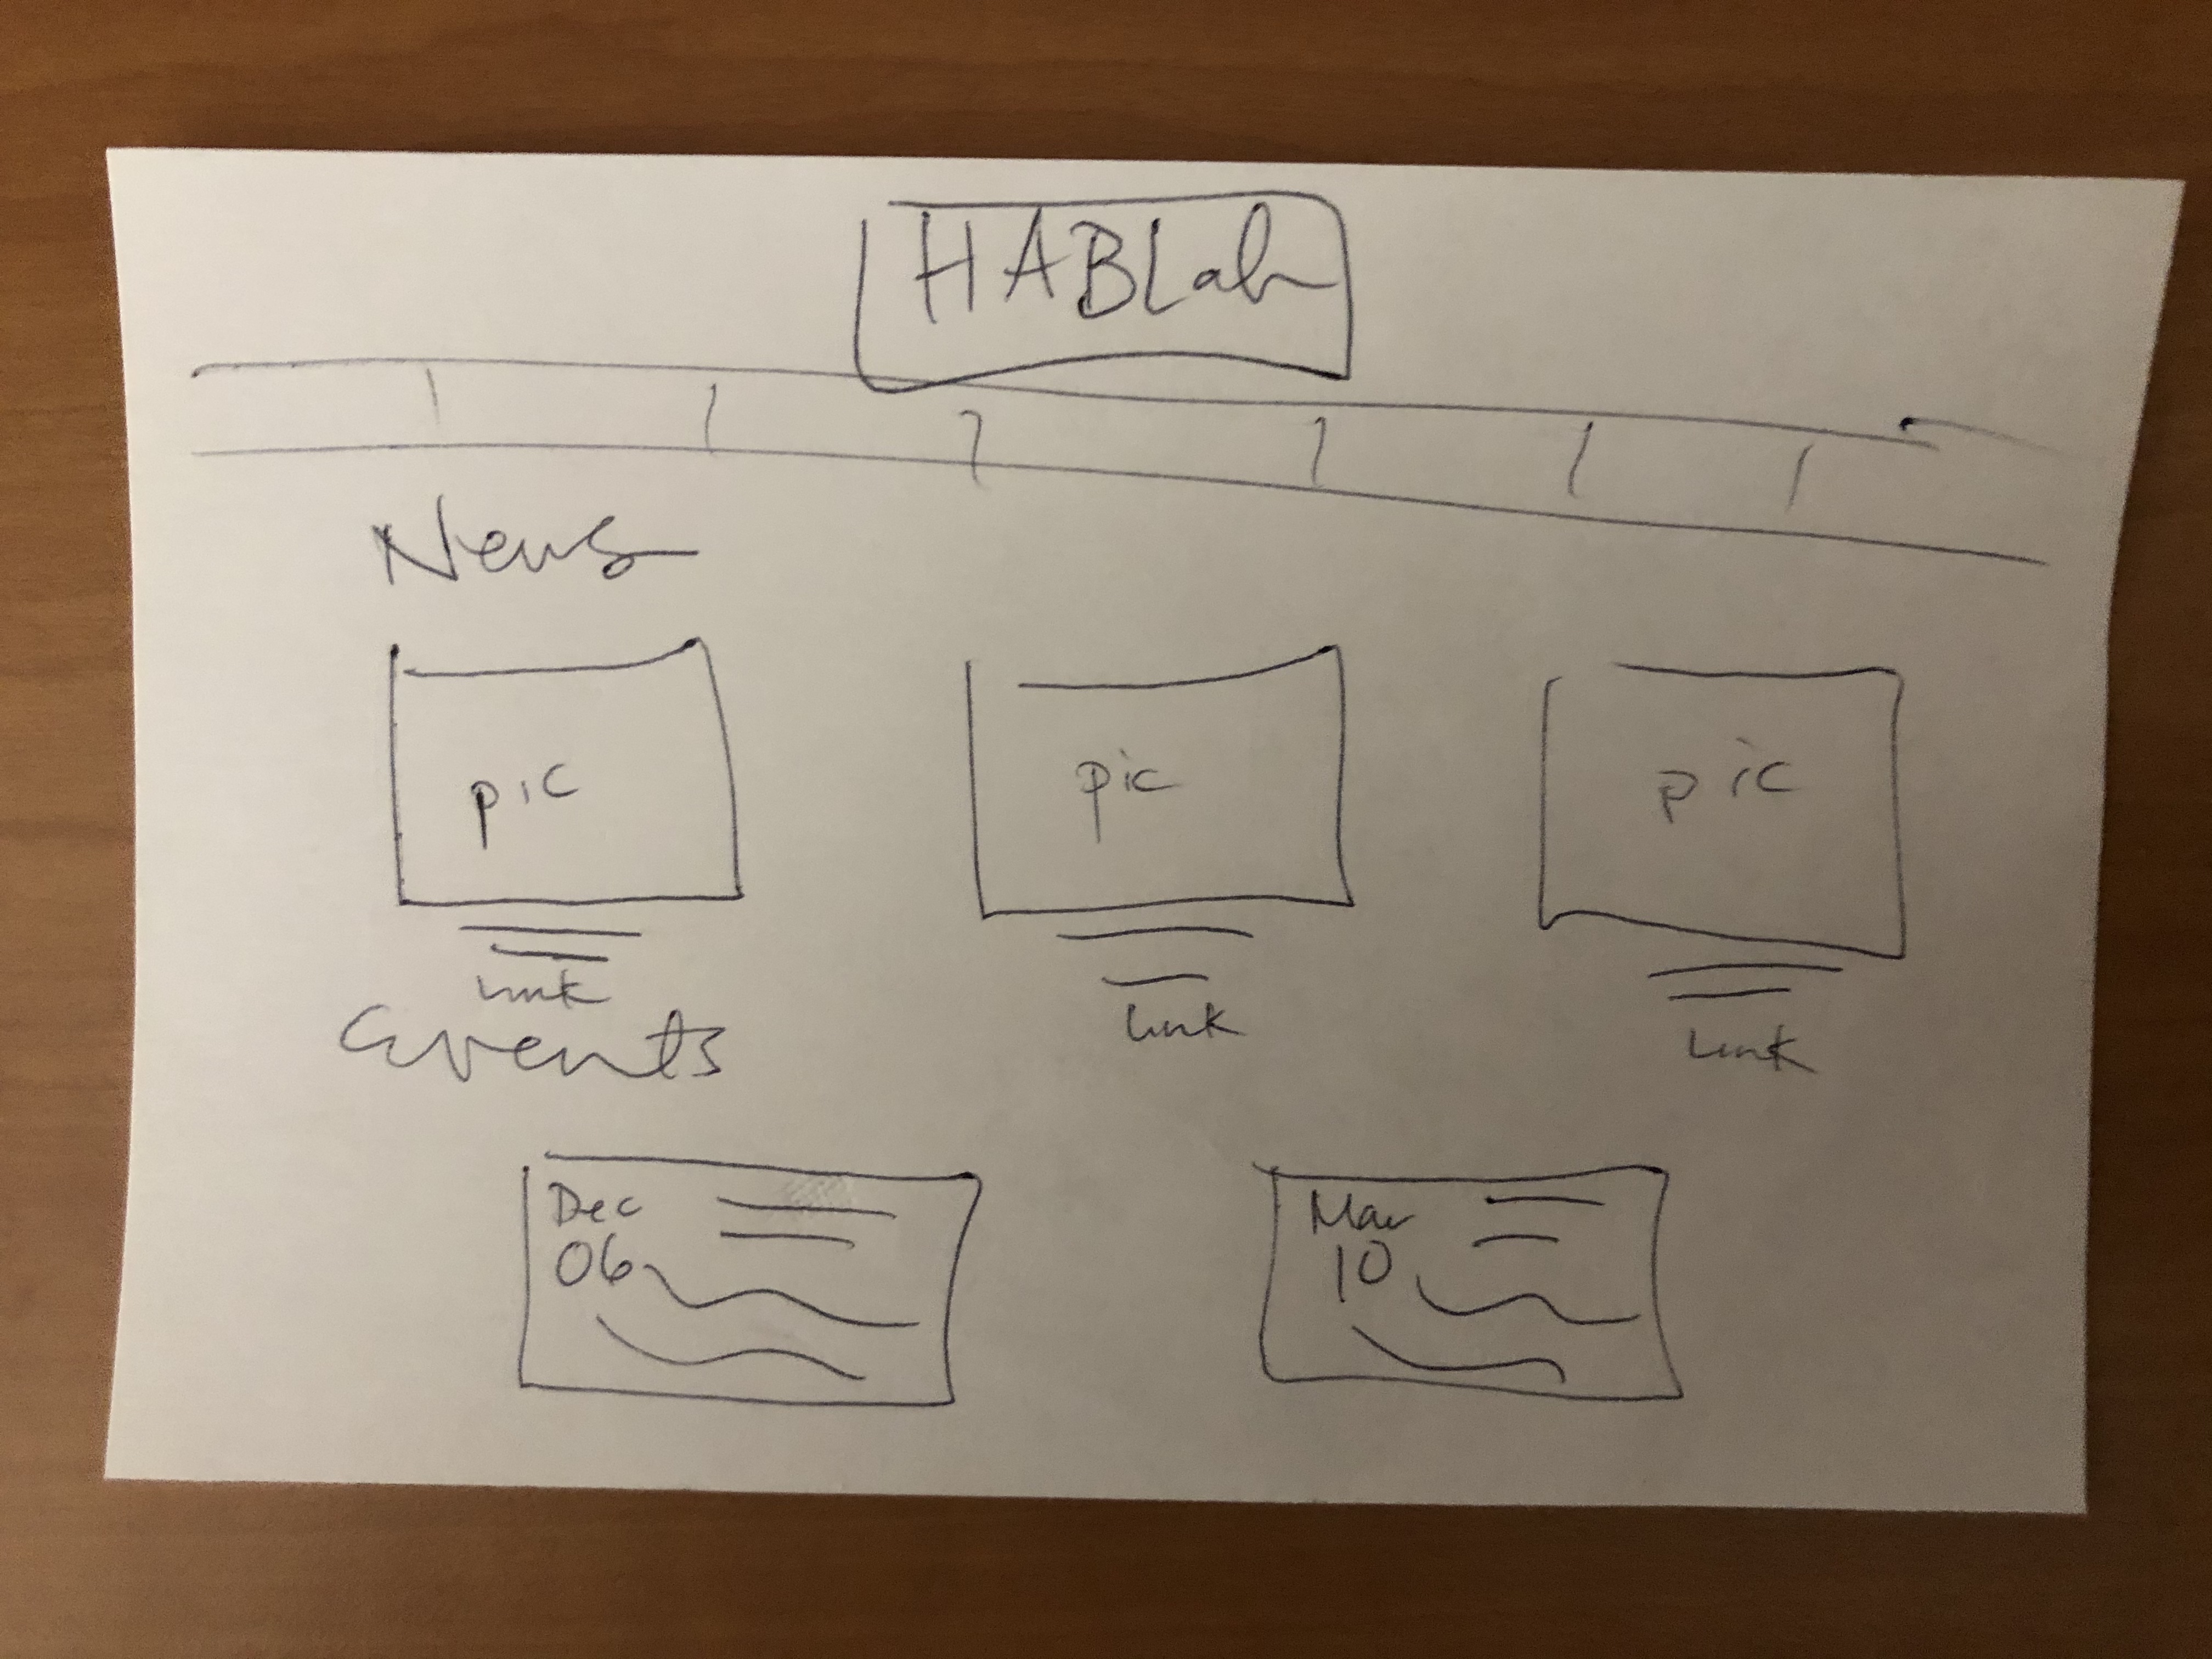 HABLab
News
pic pic pic
link
link
link
Events
Dec
06
Mar
10